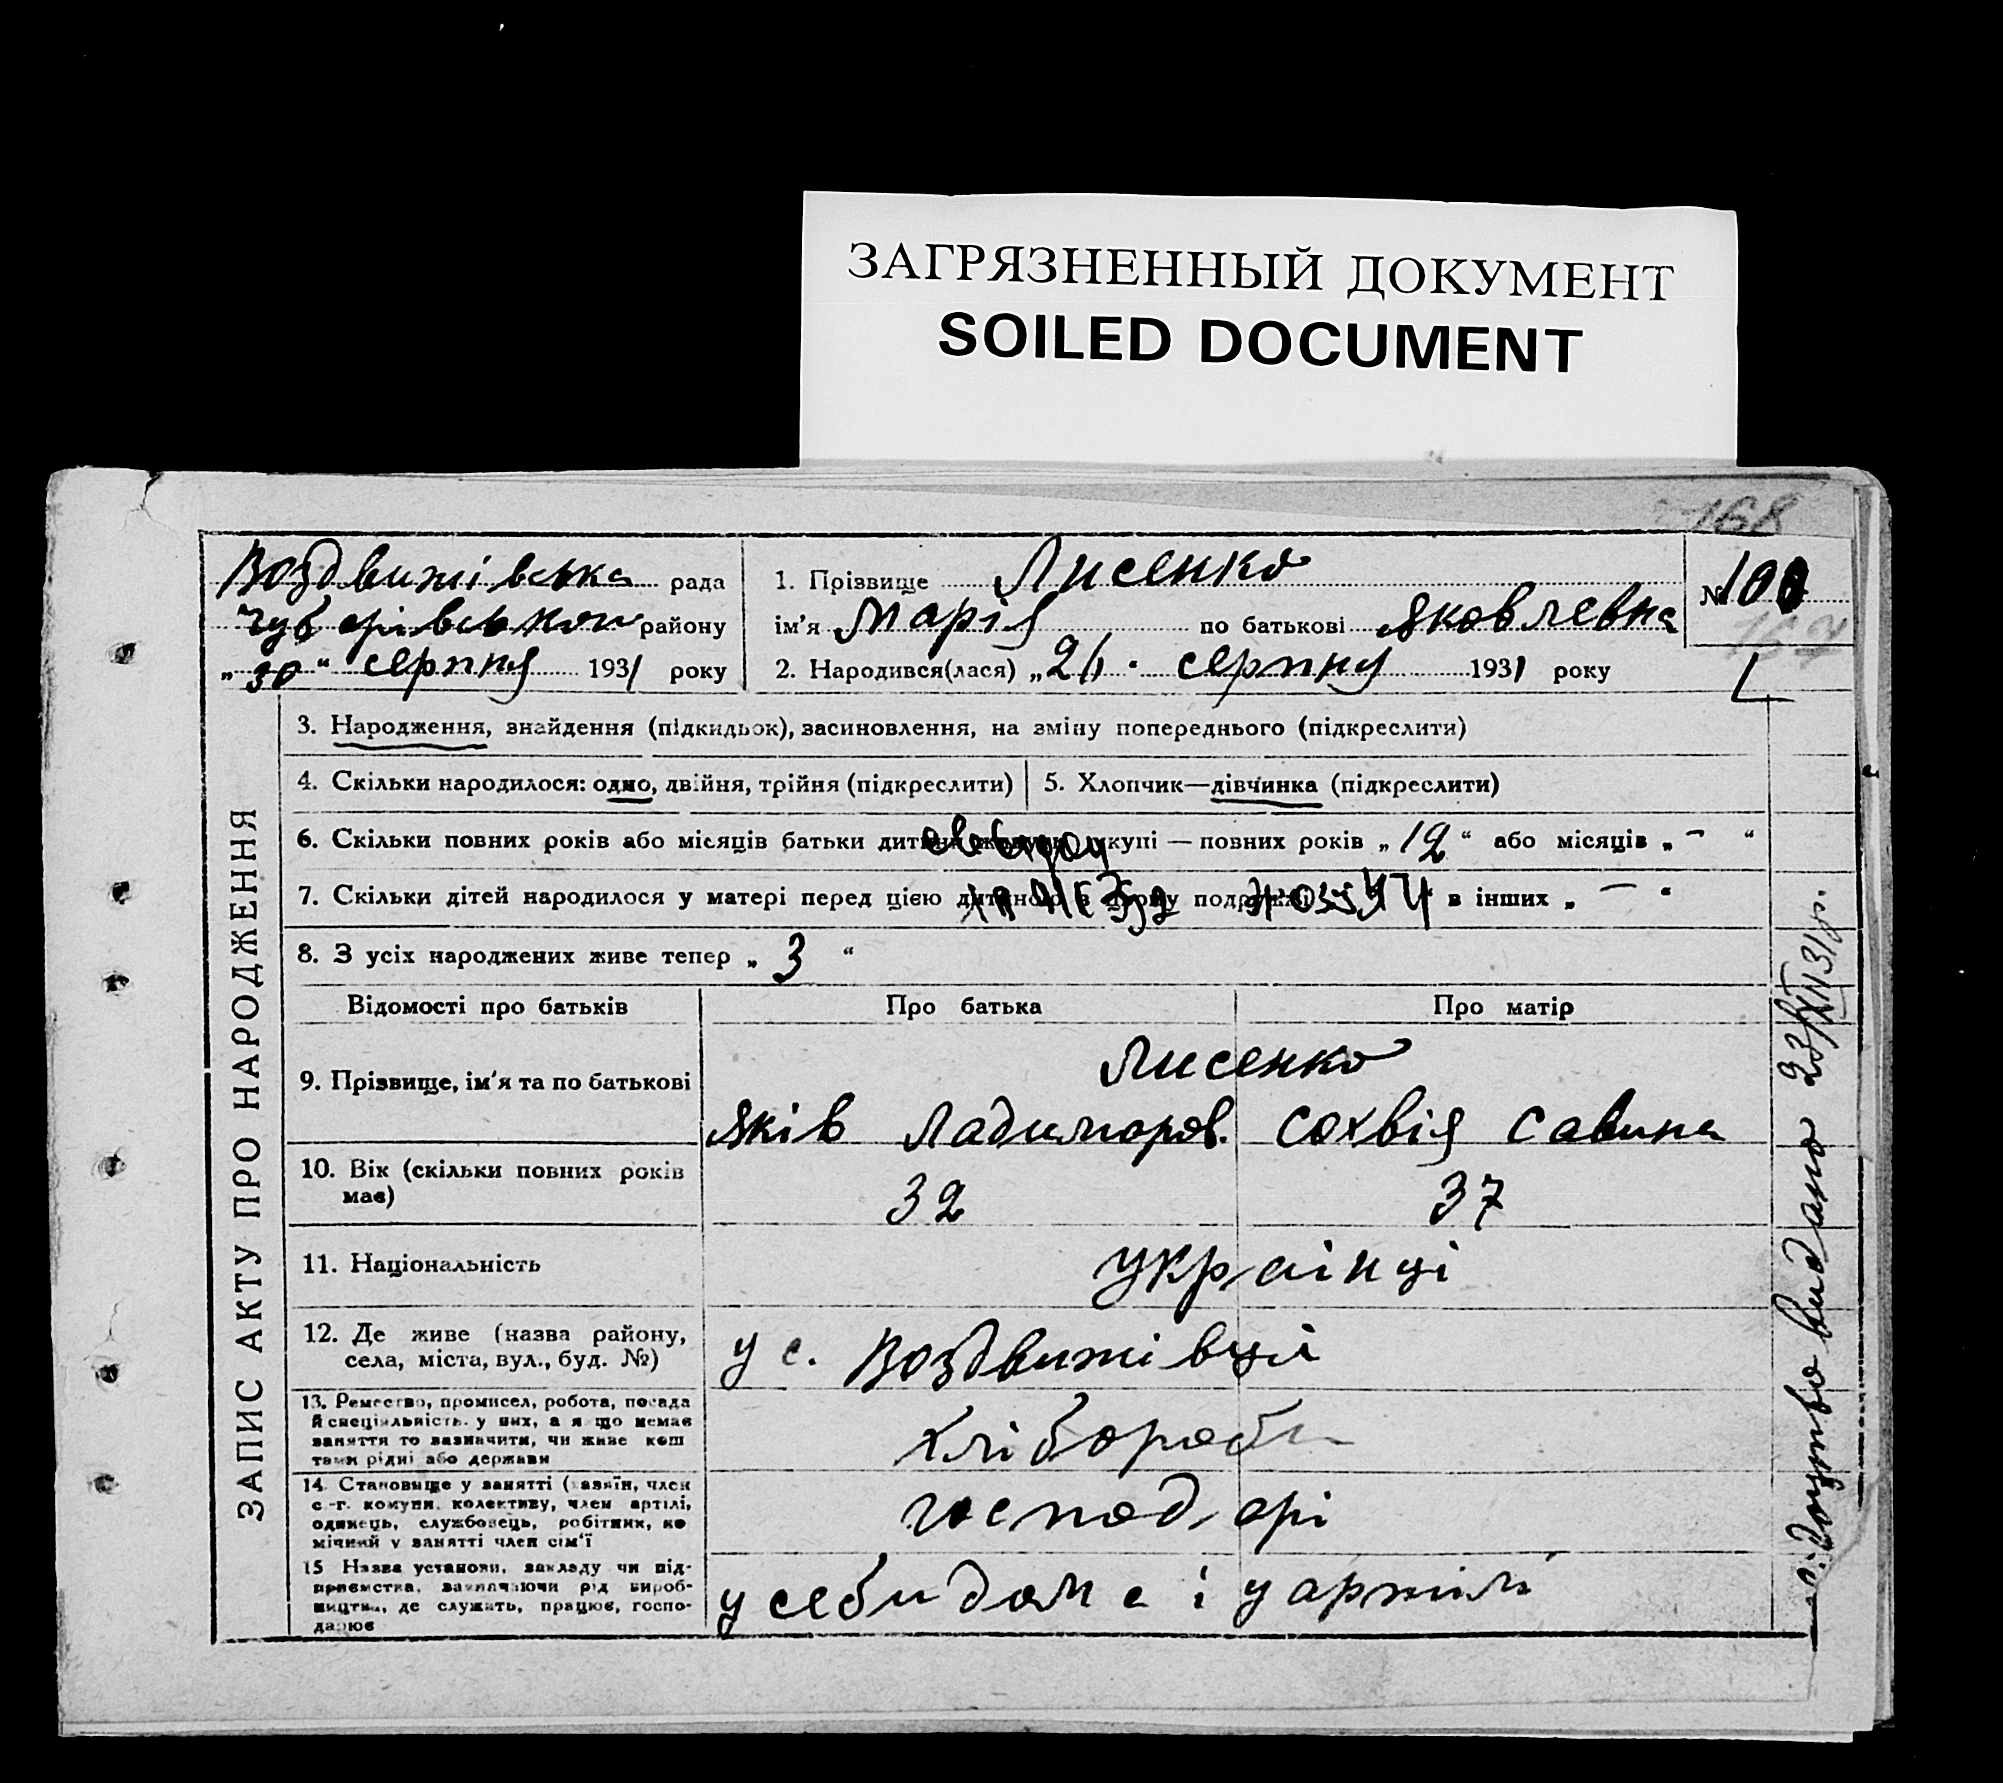 ЗАГРЯЗНЕННЫЙ ДОКУМЕНТ
SOILED DOCUMENT
168
Воздвижівська рада
Чубарівського району
„30“ серпня 1931 року
1. Прізвище Лисенко
ім'я Марія по батькові Яковлевна
№ 100
2. Народився(лася) „26. серпня 1931 року
ЗАПИС АКТУ ПРО НАРОДЖЕННЯ
3. Народження, знайдення (підкидьок), засиновлення, на зміну попереднього (підкреслити)
4. Скільки народилося: одно, двійня, трійня (підкреслити)
5. Хлопчик—дівчинка (підкреслити)
6. Скільки повних років або місяців батьки вкупі — повних років „12“ або місяців „–“
7. Скільки дітей народилося у матері перед цією дитиною в цьому подружжі в інших „ –
8. З усіх народжених живе тепер „3“
Відомості про батьків Про батька Про матір
9. Прізвище, ім'я та по батькові
Лисенко
Яків Ладимиров. Сохвія Савина
10. Вік (скільки повних років має)
32 37
11. Національність
українці
12. Де живе (назва району,
села, міста, вул., буд. №)
у с. Воздвижівці
13. Ремество, промисел, робота, посада
й спеціяльність у них, а якщо немає
заняття то зазначити, чи живе кош
тами рідні або держави
хлібороби
14. Становище у занятті (хазяїн, член
с.-г. комуни, колективу, член артілі,
одинець, службовець, робітник, по
мічний у занятті член сім'ї
господарі
15 Назва установи, закладу чи під-
приємства, зазначаючи рід вироб-
ництва, де служить, працює, госпо-
дарює
у себи дома і у артілі
видано 23/XII 31 р.